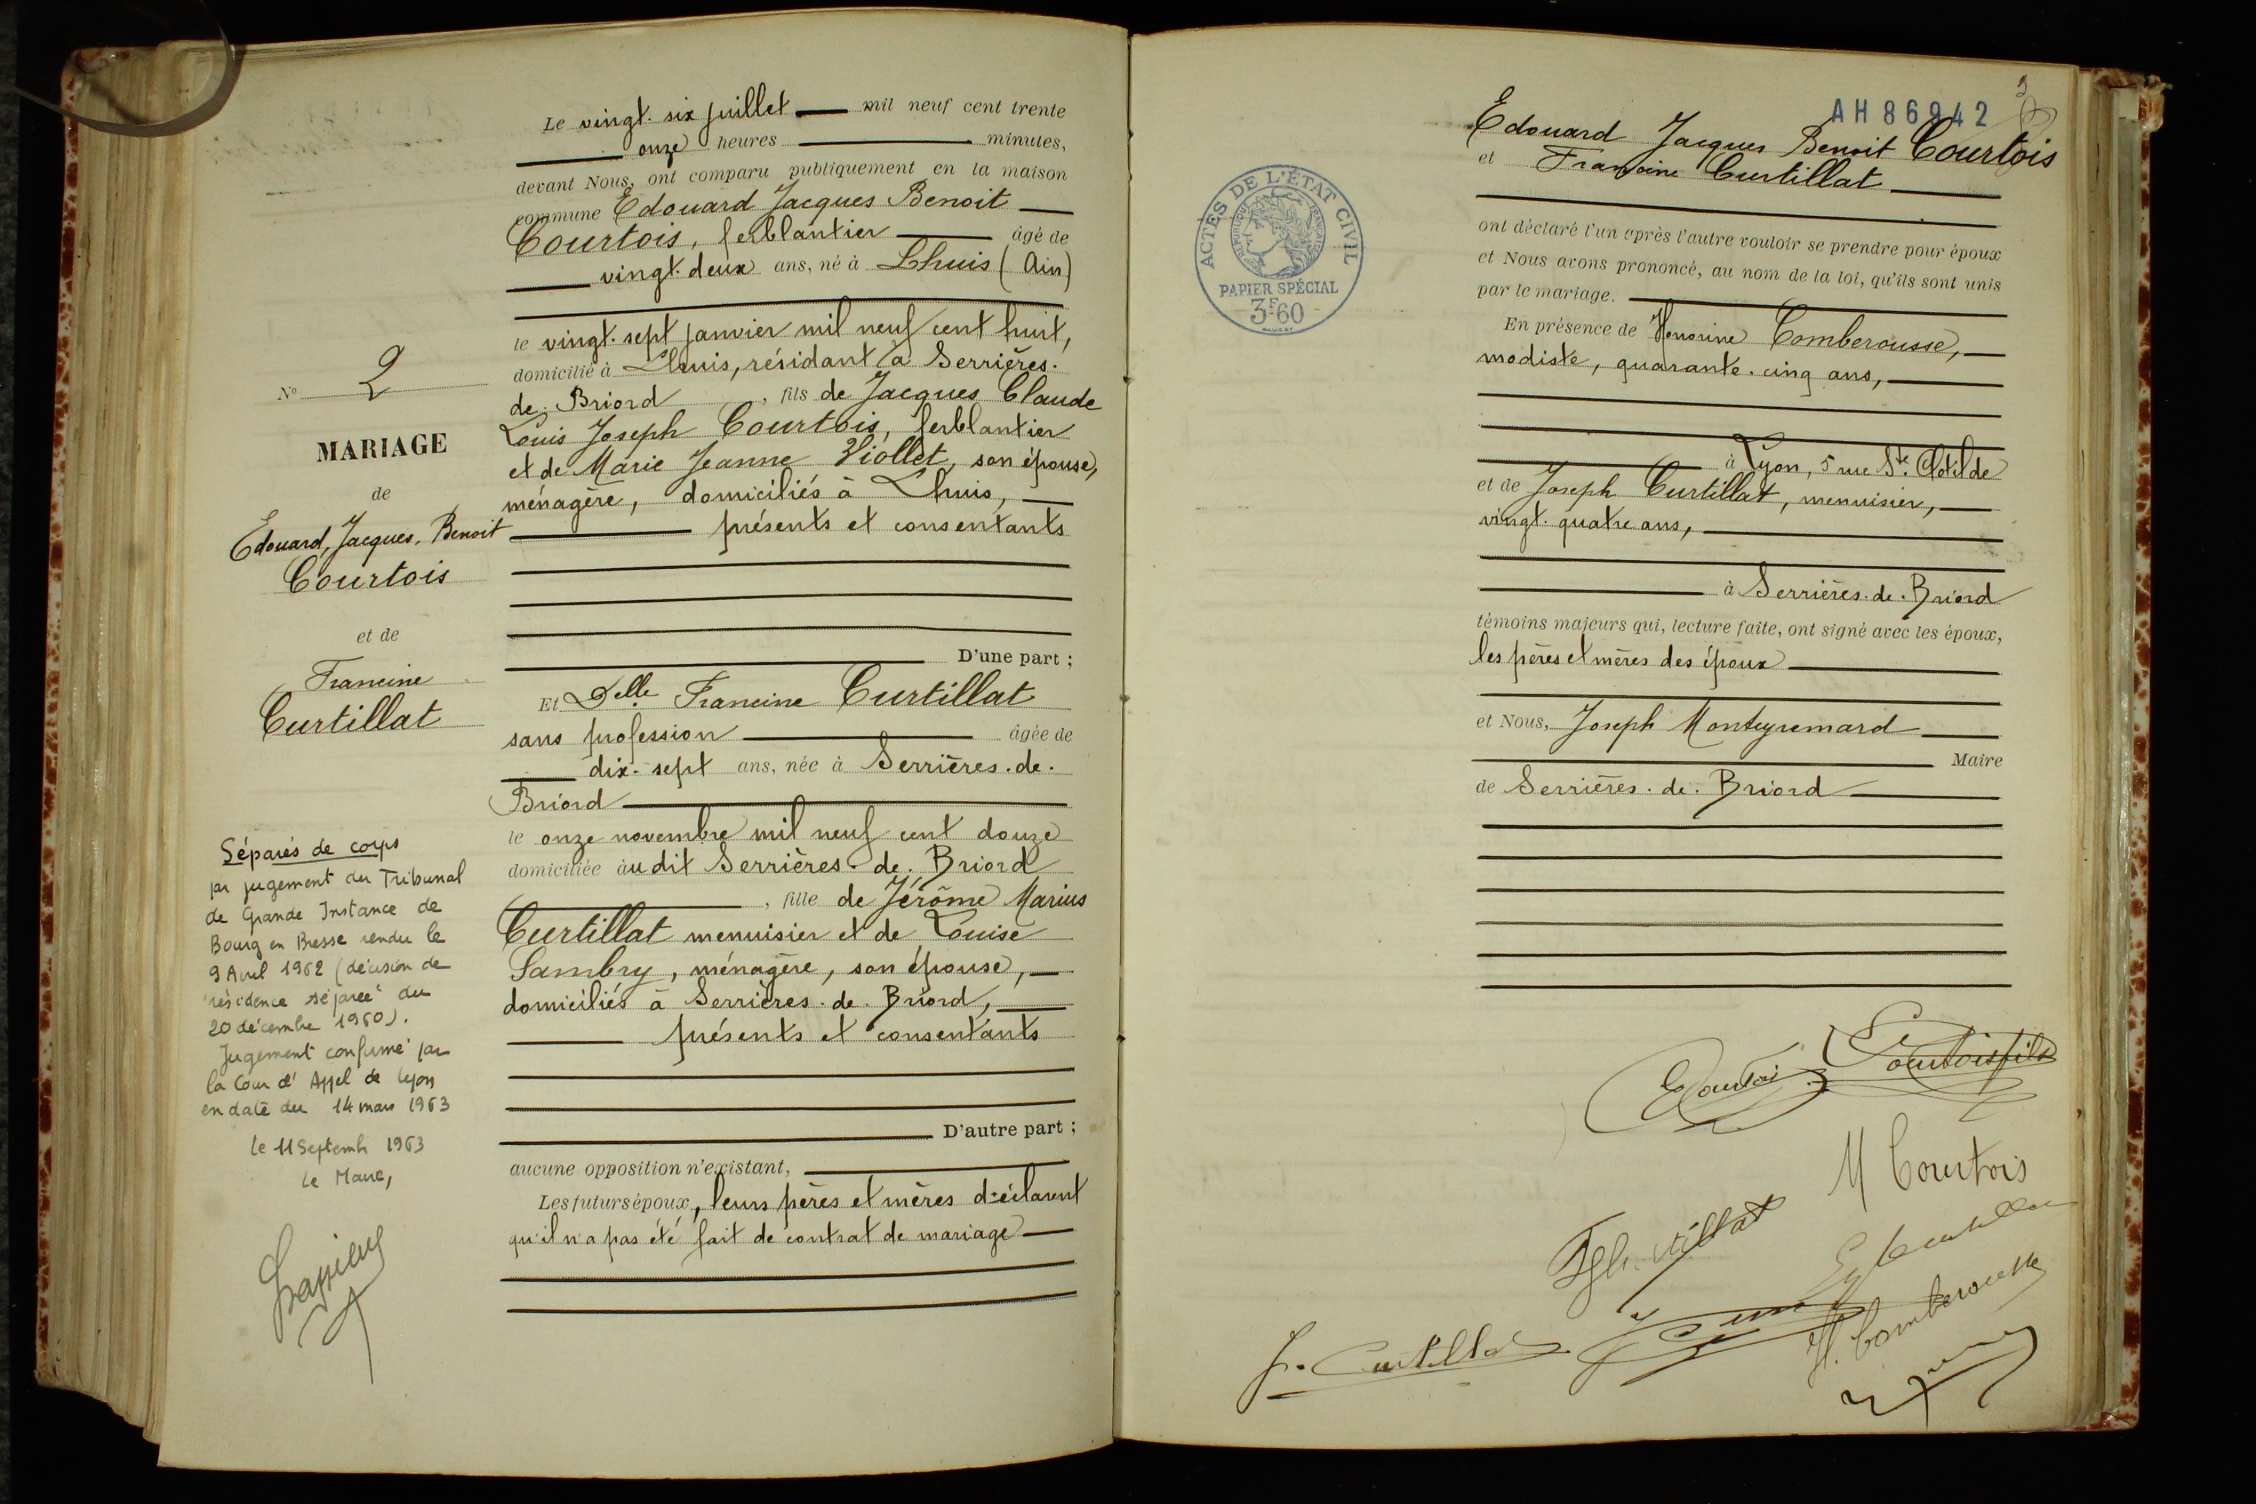 N° 2
MARIAGE
de
Edouard, Jacques, Benoit
Courtois
et de
Francine
Curtillat
Séparés de corps
par jugement du Tribunal
de Grande Instance de
Bourg en Bresse rendu le
9 Avril 1962 (décision de
résidence séparée du
20 décembre 1960).
Jugement confirmé par
la Cour d'Appel de Lyon
en date du 14 mars 1963
le 11 Septembre 1963
Le Maire,
Le vingt-six juillet mil neuf cent trente
onze heures minutes,
devant Nous, ont comparu publiquement en la maison
commune Edouard Jacques Benoit
Courtois, ferblantier âgé de
vingt-deux ans, né à Lhuis (Ain)
le vingt-sept janvier mil neuf cent huit,
domicilié à Lhuis, résidant à Serrières-
de-Briord, fils de Jacques Claude
Louis Joseph Courtois, ferblantier
et de Marie Jeanne Viollet, son épouse,
ménagère, domiciliés à Lhuis,
présents et consentants
D'une part ;
Et Delle Francine Curtillat
sans profession âgée de
dix-sept ans, née à Serrières-de-
Briord
le onze novembre mil neuf cent douze
domiciliée audit Serrières-de-Briord
, fille de Jérôme Marius
Curtillat menuisier et de Louise
Sambry, ménagère, son épouse,
domiciliés à Serrières-de-Briord,
présents et consentants
D'autre part ;
aucune opposition n'existant,
Les futurs époux, leurs pères et mères déclarent
qu'il n'a pas été fait de contrat de mariage
AH 86942
ACTES DE L'ÉTAT CIVIL
RÉPUBLIQUE FRANÇAISE
PAPIER SPÉCIAL
3F60
Edouard Jacques Benoit Courtois
et Francine Curtillat
ont déclaré l'un après l'autre vouloir se prendre pour époux
et Nous avons prononcé, au nom de la loi, qu'ils sont unis
par le mariage.
En présence de Honorine Comberousse,
modiste, quarante-cinq ans,
à Lyon, 5 rue Ste Clotilde
et de Joseph Curtillat, menuisier,
vingt-quatre ans,
à Serrières-de-Briord
témoins majeurs qui, lecture faite, ont signé avec les époux,
les pères et mères des époux
et Nous, Joseph Monteyremard
Maire
de Serrières-de-Briord
E Courtois
Courtois fils
M Courtois
H. Comberousse
J. Curtillat